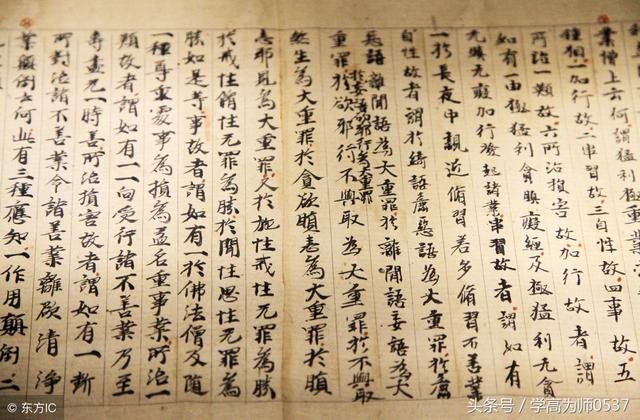 業增上云何謂猛利
種相一加行故二串習故三自性故四事故五
所治一類故六所治損害故加行故者謂
如有一由極猛利貪瞋癡纏及極猛利无貪
无瞋无癡加行發起諸業串習故者謂如有
一於長夜中親近脩習若多脩習不善業
自性故者謂於綺語麁惡語為大重罪於麁
惡語離間語為大重罪於離間語妄語為大
於妄語欲邪行為大重罪
重罪於欲邪行不與取為大重罪於不與取
煞生為大重罪於貪欲瞋恚為大重罪於瞋
恚邪見為大重罪又於施性戒性无罪為勝
於戒性脩性无罪為勝於聞性思性无罪為
勝如是等事故者謂如有一於佛法僧及隨
一種尊重處事為損為益名重事業所治一
類故者謂如有一一向受行諸不善業乃至
壽盡无一時善所治損害故者謂如有一斷
所對治諸不善業令諸善業離欲清淨
業顛倒云何此有三種應知一作用顛倒二
© 东方IC
头条号 / 学高为师0537